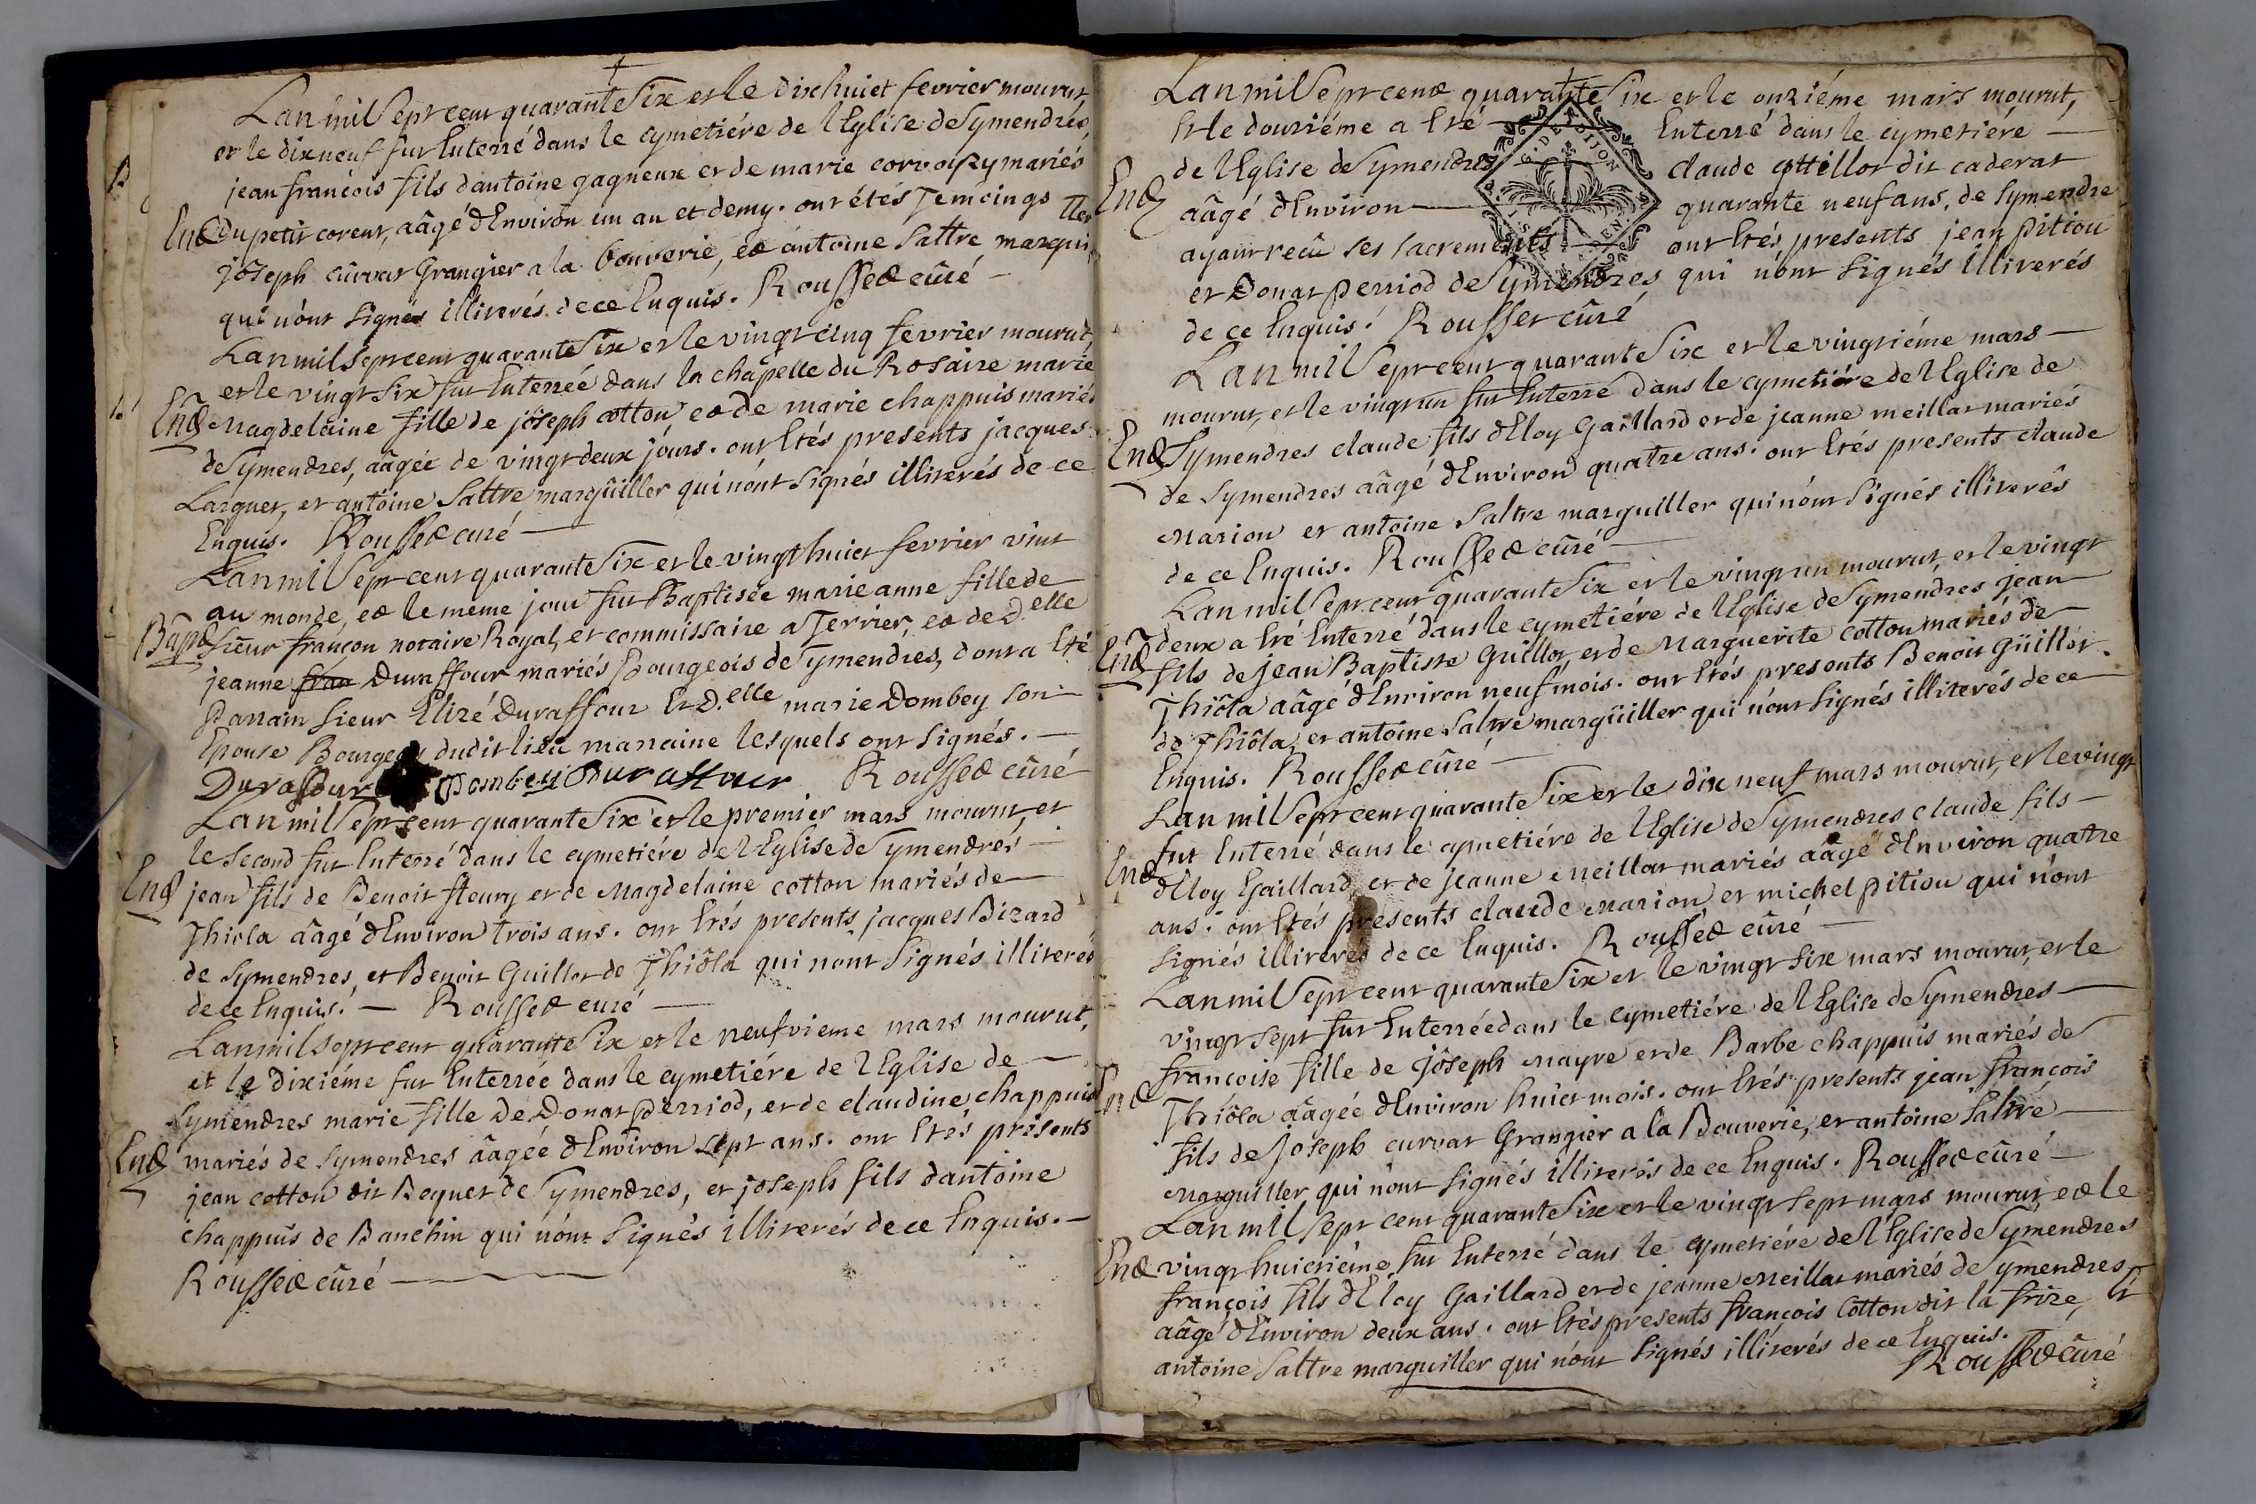 Lan mil Sept cent quarante Six et le dixhuict fevrier mourut,
et le dixneuf fut Enterré dans le cymetiére de lEglise de Symendres,
jean françois fils dantoine gagneux et de marie corvoisy mariés
Ent du petit corent, aâgé dEnviron un an et demy. ont étés Temoings
joseph curvat Grangier a la bouverie, et antoine Saltre
qui n'ont signés illiterés de ce Enquis. Rousset cûré
Lan mil sept cent quarante Six et le vingt cinq fevrier mourut,
et le vingt Six fut Enterrée dans la chapelle du Rosaire marie
Ent Magdelaine fille de joseph cotton, et de marie chappuis mariés
de Symendres, aâgée de vingt deux jours. ont Etés presents jacques
Larguet, et antoine Saltre margüiller qui n'ont signés illiterés de ce
Enquis. Rousset curé
Lan mil Sept cent quarante Six et le vingt huict fevrier vint
au monde, et le meme jour fut Baptisée marie anne fille de
Bapt Sieur françon notaire Royal, et commissaire a Terrier, et de D.elle
jeanne fran Duraffour mariés Bourgeois de Symendres, dont a Eté
Parrain Sieur Elizé Duraffour Et D.elle marie Dombey son
Epouse Bourgeois dudit lieu marraine lesquels ont signés.
Duraffour Dombey Duraffour Rousset cûré
Lan mil Sept cent quarante Six et le premier mars mourut, et
le second fut Enterré dans le cymetiére de lEglise de Symendres
Ent jean fils de Benoit fleury et de Magdelaine cotton mariés de
Thiola aâgé dEnviron trois ans. ont Etés presents jacques Bizard
de Symendres, et Benoit Guillot de Thiôla qui n'ont Signés illiterés
de ce Enquis. Rousset curé
Lan mil sept cent quarante Six et le neufvieme mars mourut,
et le Dixiéme fut Enterrée dans le cymetiére de lEglise de
Symendres marie fille de Donat Perriod, et de claudine chappuis
Ent mariés de Symendres aâgée dEnviron sept ans. ont Etés présents
jean cotton dit Bequet de Symendres, et joseph fils dantoine
chappuis de Banchin qui n'ont Signés illiterés de ce Enquis.
Rousset cûré
Lan mil Sept cent quarante Six et le onziéme mars mourut,
Et le douziéme a Eté Enterré dans le cymetiére
de lEglise de Symendres claude cottillot dit caderat
Ent aâgé dEnviron quarante neuf ans, de Symendre
ayant recû ses sacrements ont Etés presents jean Pitiou
et Donat Perriod de Symendres qui n'ont signés illiterés
de ce Enquis. Rousset cûré
G. DE DIJON
Lan mil Sept cent quarante Six et le vingtiéme mars
mourut, et le vingt un fut Enterré dans le cymetiére de lEglise de
Ent Symendres claude fils dEloy Gaillard et de jeanne meillat mariés
de Symendres aâgé dEnviron quatre ans. ont Etés presents claude
Marion et antoine Saltre marguiller qui n'ont Signés illiterés
de ce Enquis. Rousset cûré
Lan mil Sept cent quarante Six et le vingt un mourut, et le vingt
deux a Eté Enterré dans le cymetiére de lEglise de Symendres jean
Ent fils de jean Baptiste Guillot, et de Marguerite cotton mariés de
Thiôla aâgé dEnviron neuf mois. ont Etés presents Benoit Güillot
de Thiôla, et antoine Saltre margüiller qui n'ont signés illiterés de ce
Enquis. Rousset cûré
Lan mil Sept cent quarante Six et le dix neuf mars mourut, et le vingt
fut Enterré dans le cymetiére de lEglise de Symendres claude fils
Ent dEloy Gaillard, et de jeanne Meillat mariés aâgé dEnviron quatre
ans. ont Etés presents claude Marion et michel Pitiou qui n'ont
signés illiterés de ce Enquis. Rousset cûré
Lan mil Sept cent quarante Six et le vingt Six mars mourut, et le
vingt sept fut Enterrée dans le cymetiére de lEglise de Symendres
francoise fille de jôseph Mayre et de Barbe chappuis mariés de
Ent Thiôla aâgée dEnviron huict mois. ont Etés presents jean francois
fils de Joseph curvat Grangier a la Bouverie, et antoine Saltre
Marguiller qui n'ont signés illiterés de ce Enquis. Rousset cûré
Lan mil Sept cent quarante Six et le vingt sept mars mourut et le
Ent vingt huictiéme fut Enterré dans le cymetiére de lEglise de Symendres
françois fils dEloy Gaillard et de jeanne Meillat mariés de Symendres
aâgé dEnviron deux ans. ont Etés presents françois Cotton dit la frize, Et
antoine Saltre marguiller qui n'ont signés illiterés de ce Enquis.
Rousset cûré